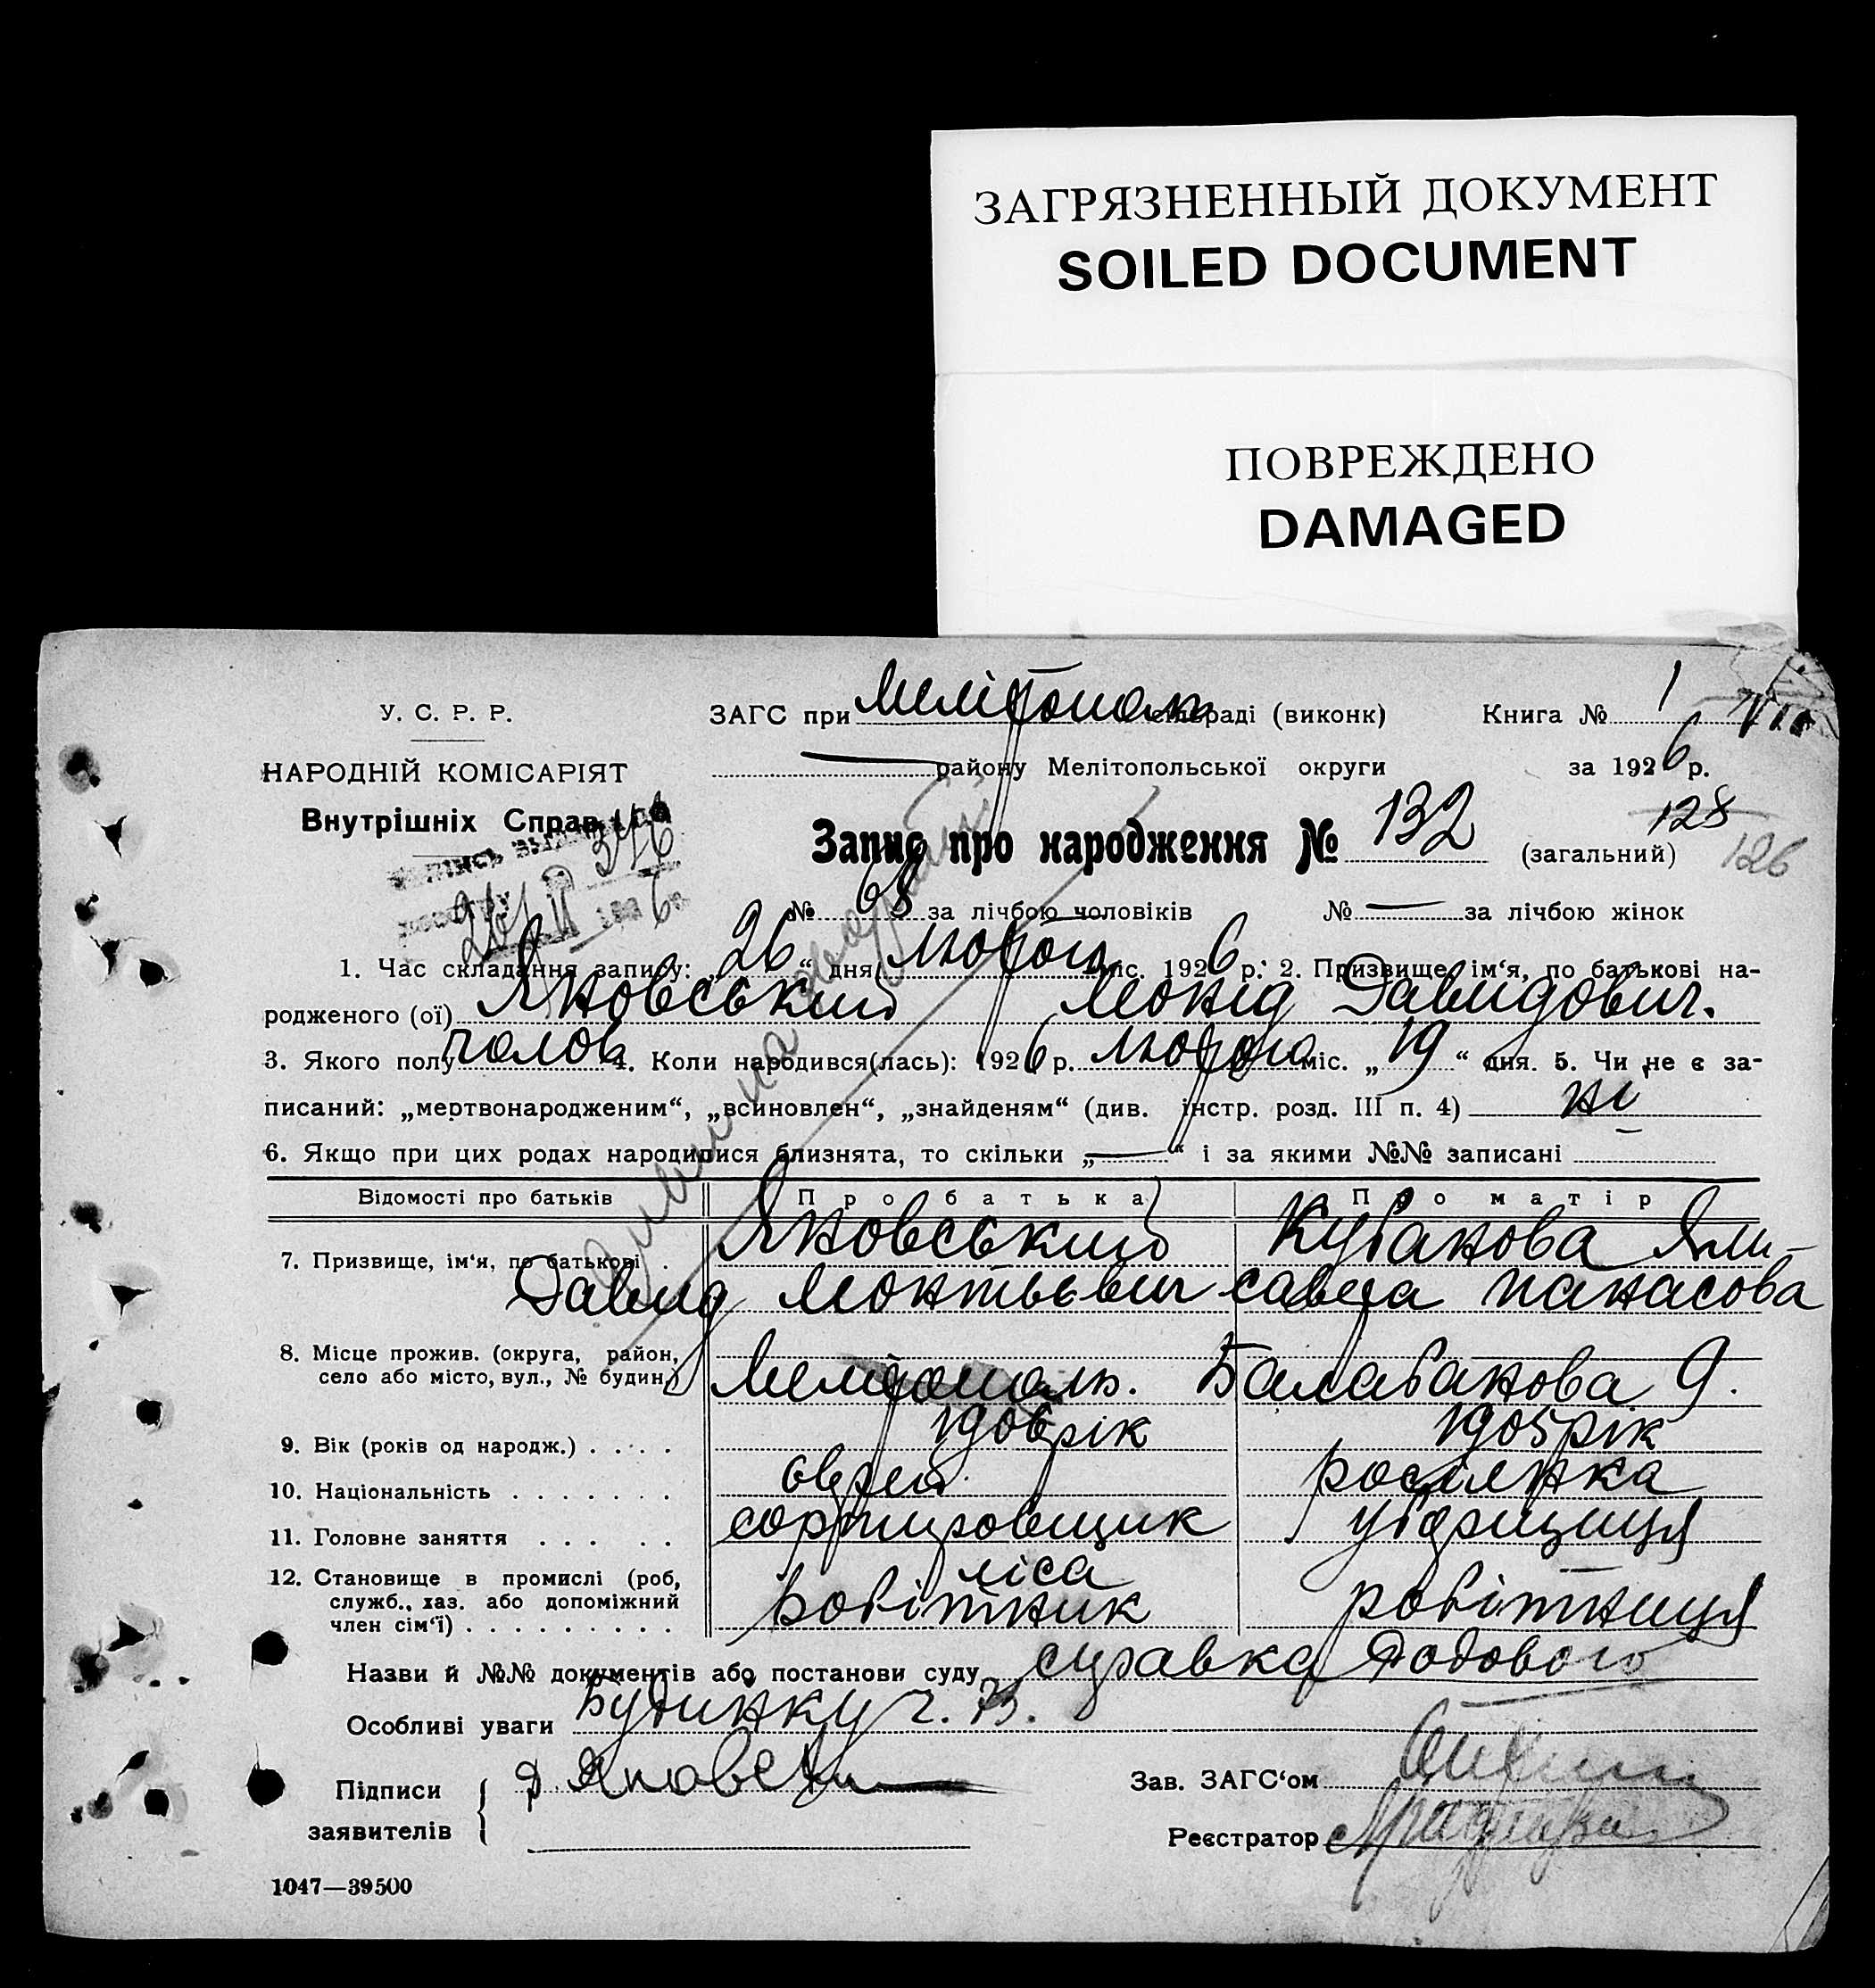 ЗАГРЯЗНЕННЫЙ ДОКУМЕНТ
SOILED DOCUMENT
ПОВРЕЖДЕНО
DAMAGED
У. С. Р. Р.
НАРОДНІЙ КОМІСАРІЯТ
Внутрішніх Справ
346
26 II 1926
ЗАГС при Мелітопол міськраді (виконк) Книга № 1
— району Мелітопольської округи за 1926 р.
Запис про народження № 132 (загальний) 128 126
№ 68 за лічбою чоловіків № — за лічбою жінок
1. Час складання запису: „26“ дня лютого міс. 1926 р. 2. Призвище, ім‘я, по батькові на-
родженого (ої) Яновський Леонід Давидович.
3. Якого полу чолов 4. Коли народився(лась): 1926 р. лютого міс. „19“ дня. 5. Чи не є за-
писаний: „мертвонародженим“, „всиновлен“, „знайденям“ (див. інстр. розд. III п. 4) ні
6. Якщо при цих родах народилися близнята, то скільки „—“ і за якими №№ записані —
Відомості про батьків Про батька Про матір
7. Призвище, ім‘я, по батькові . Яновський Кубанова Яли-
Давид Леонтьєвич савета Панасова
8. Місце прожив. (округа, район,
село або місто, вул., № будин.) Мелітополь. Балабанова 9.
9. Вік (років од народж.) . . . . 1906 рік 1905 рік
10. Національність . . . . . . . єврей росіянка
11. Головне заняття . . . . . сортировщик убірщиця
ліса
12. Становище в промислі (роб,
служб., хаз. або допоміжний
член сім‘ї) . . . . . . . . . робітник робітниця
Назви й №№ документів або постанови суду справка Родового
Особливі уваги будинку ч. 73.
Підписи
заявителів Д Яновский
Зав. ЗАГС‘ом
Реєстратор
1047—39500